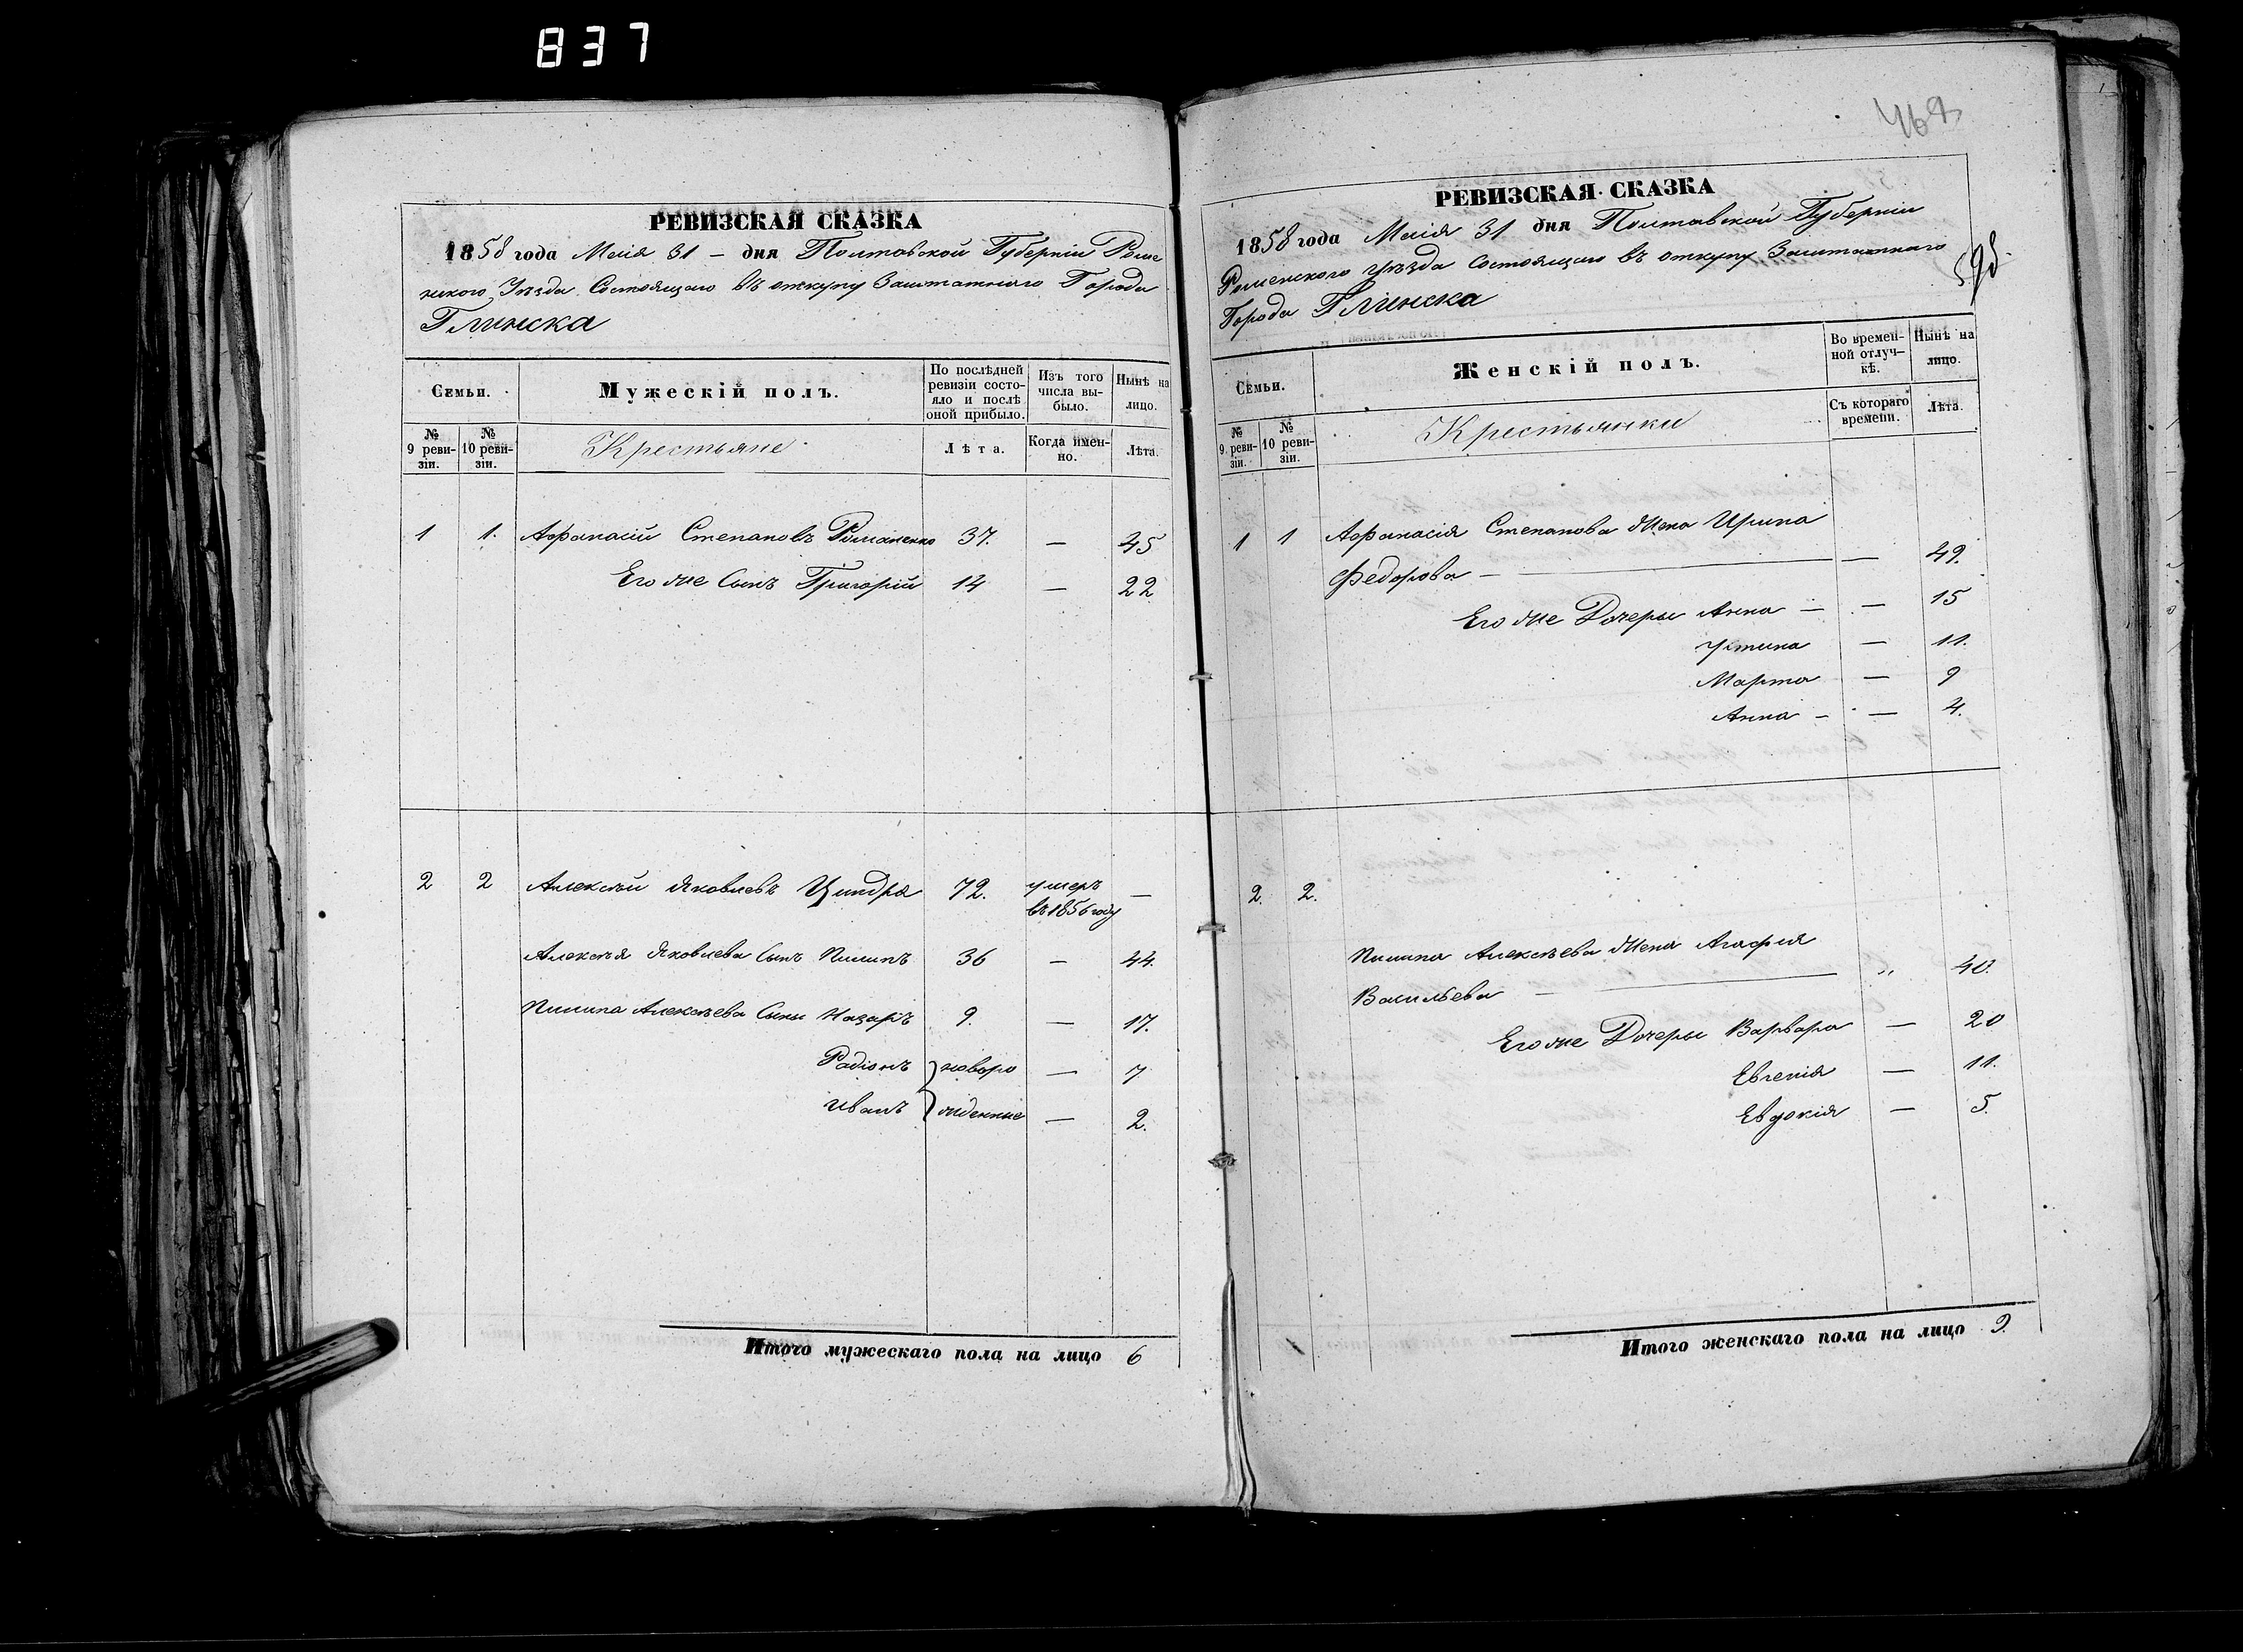 837
469
РЕВИЗСКАЯ СКАЗКА
1858 года Маія 31 – дня Полтавской Губерніи Роме
нского Уѣзда Состоящаго въ откупу Заштатнаго Города
Глинска
Семьи.
Мужескій полъ.
По послѣдней ревизіи состояло и послѣ оной прибыло.
Изъ того числа выбыло.
Нынѣ на лицо.
№ 9 ревизіи.
№ 10 ревизіи.
Крестьяне
Лѣта.
Когда именно.
Лѣта.
1 1. Афанасій Степановъ Романенко 37. — 45
Его же Сынъ Григорій 14 — 22
2 2 Алексѣй Яковлевъ Цындра 72. умеръ —
въ 1856 году
Алексѣя Яковлева Сынъ Пилипъ 36 — 44.
Пилипа Алексѣева Сыны Назаръ 9. — 17.
Радіонъ новоро — 7
Иванъ жденные — 2.
Итого мужескаго пола на лицо 6
РЕВИЗСКАЯ СКАЗКА
1858 года Маія 31 дня Полтавской Губерніи
Роменского уѣзда Состоящаго въ откупу Заштатнаго
Города Глинска
Семьи.
Женскій полъ.
Во временной отлучкѣ.
Нынѣ на лицо.
№ 9 ревизіи.
№ 10 ревизіи.
Крестьянки
Съ котораго времени.
Лѣта.
1 1 Афанасія Степанова Жена Ирина
Федорова — — 49.
Его же Дочеры Анна — — 15
Устина — 11.
Марта — 9
Анна – — 4.
2. 2.
Пилипа Алексѣева Жена Агафія
Васильева — „ 40.
Его же Дочеры Варвара — 20
Евгенія — 11.
Евдокія — 5.
Итого женскаго пола на лицо 9.